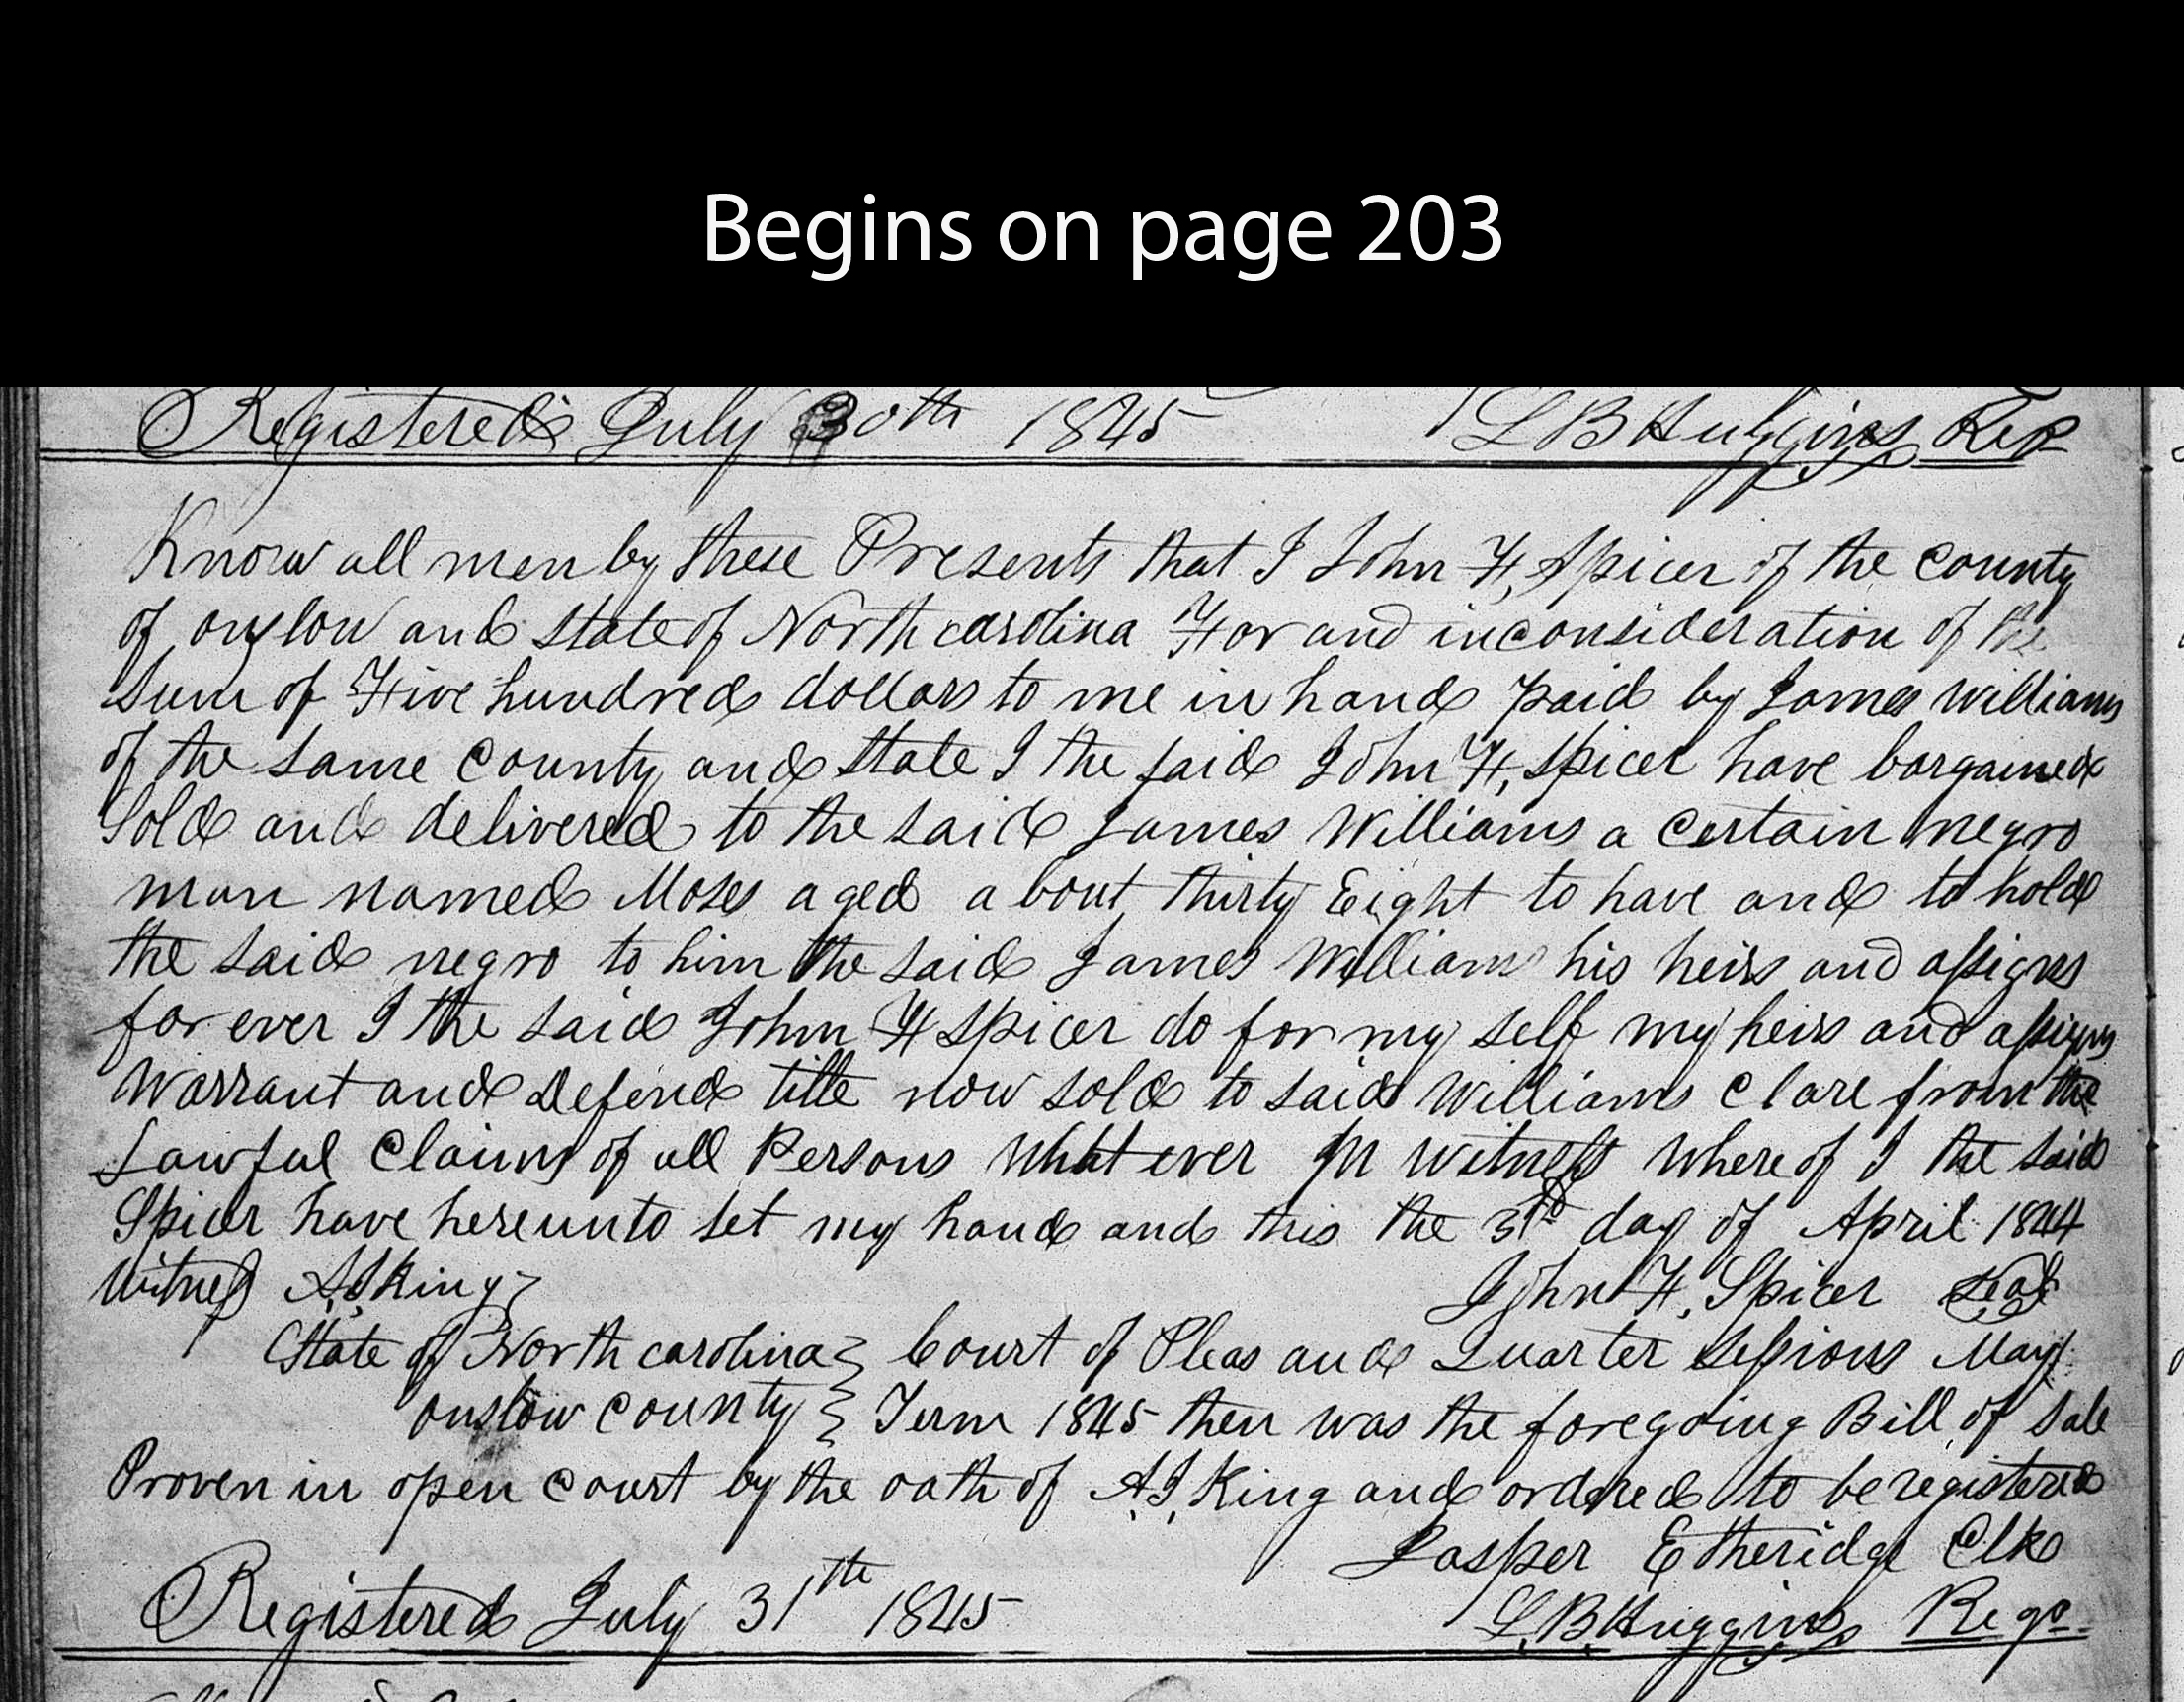 Begins on page 203
Registered July 30th 1845 L B Huggins Reg
Know all men by these Presents that I John H, Spicer of the county
of onslow and state of North carolina For and inconsideration of the
Sum of Five hundred dollars to me in hand paid by James Williams
of the same County and State I the said John H, Spicer have bargained
Sold and delivered to the said James Williams a certain negro
man named Moses aged a bout thirty Eight to have and to hold
the said negro to him the said James Williams his heirs and assigns
for ever I the said John H Spicer do for my self my heirs and assigns
Warrant and Defend title now sold to said Williams Clare from the
Lawful Claims of all Persons What ever In witness where of I the said
Spicer have here unto set my hand and this the 3rd day of April 1844
Witness A, J, King John H, Spicer Seal
State of North carolina Court of Pleas and Quarter Sessions May
onslow county Term 1845 then was the foregoing Bill of Sale
Proven in open court by the oath of A, J, King and ordered to be registered
Jasper Etheridge Clk
Registered July 31th 1845 L, B, Huggins Regr